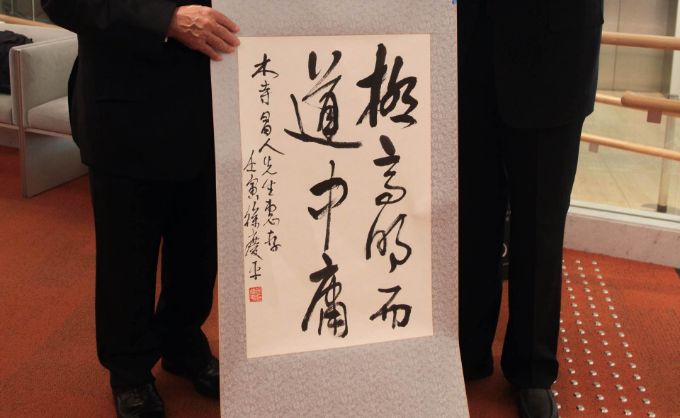 極高明而
道中庸
木寺昌人先生惠存
壬寅徐慶平